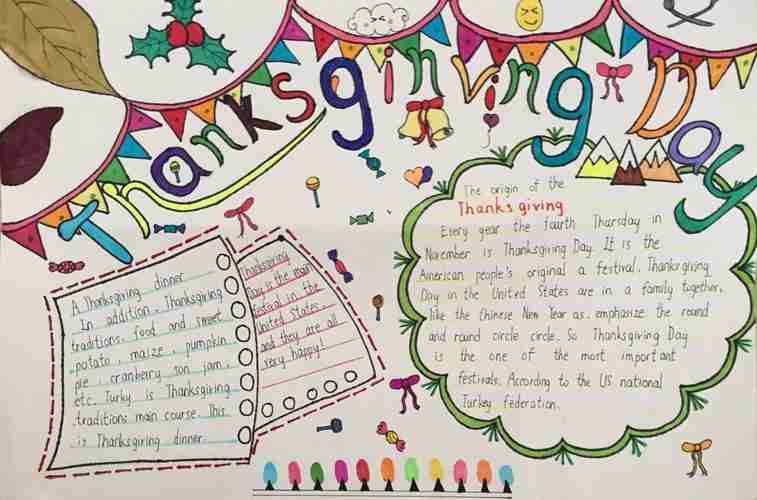 Thanksginving Day
A Thanksgiving dinner
In addition, Thanksgiving
traditions, food and sweet
potato, maize, pumpkin
pie, cranberry son jam,
etc. Turky is Thanksgiving
traditions main course. This
is Thanksgiving dinner
Thanksgiving
Day is the main
festival in the
United States,
and they are all
very happy!
The origin of the
Thanks giving
Every year the fourth Thursday in
November is Thanksgiving Day. It is the
American people's original a festival. Thanksgiving
Day in the United States are in a family together,
like the Chinese New Year as. emphasize the round
and round circle circle. So Thanksgiving Day
is the one of the most important
festivals. According to the US national
Turkey federation.